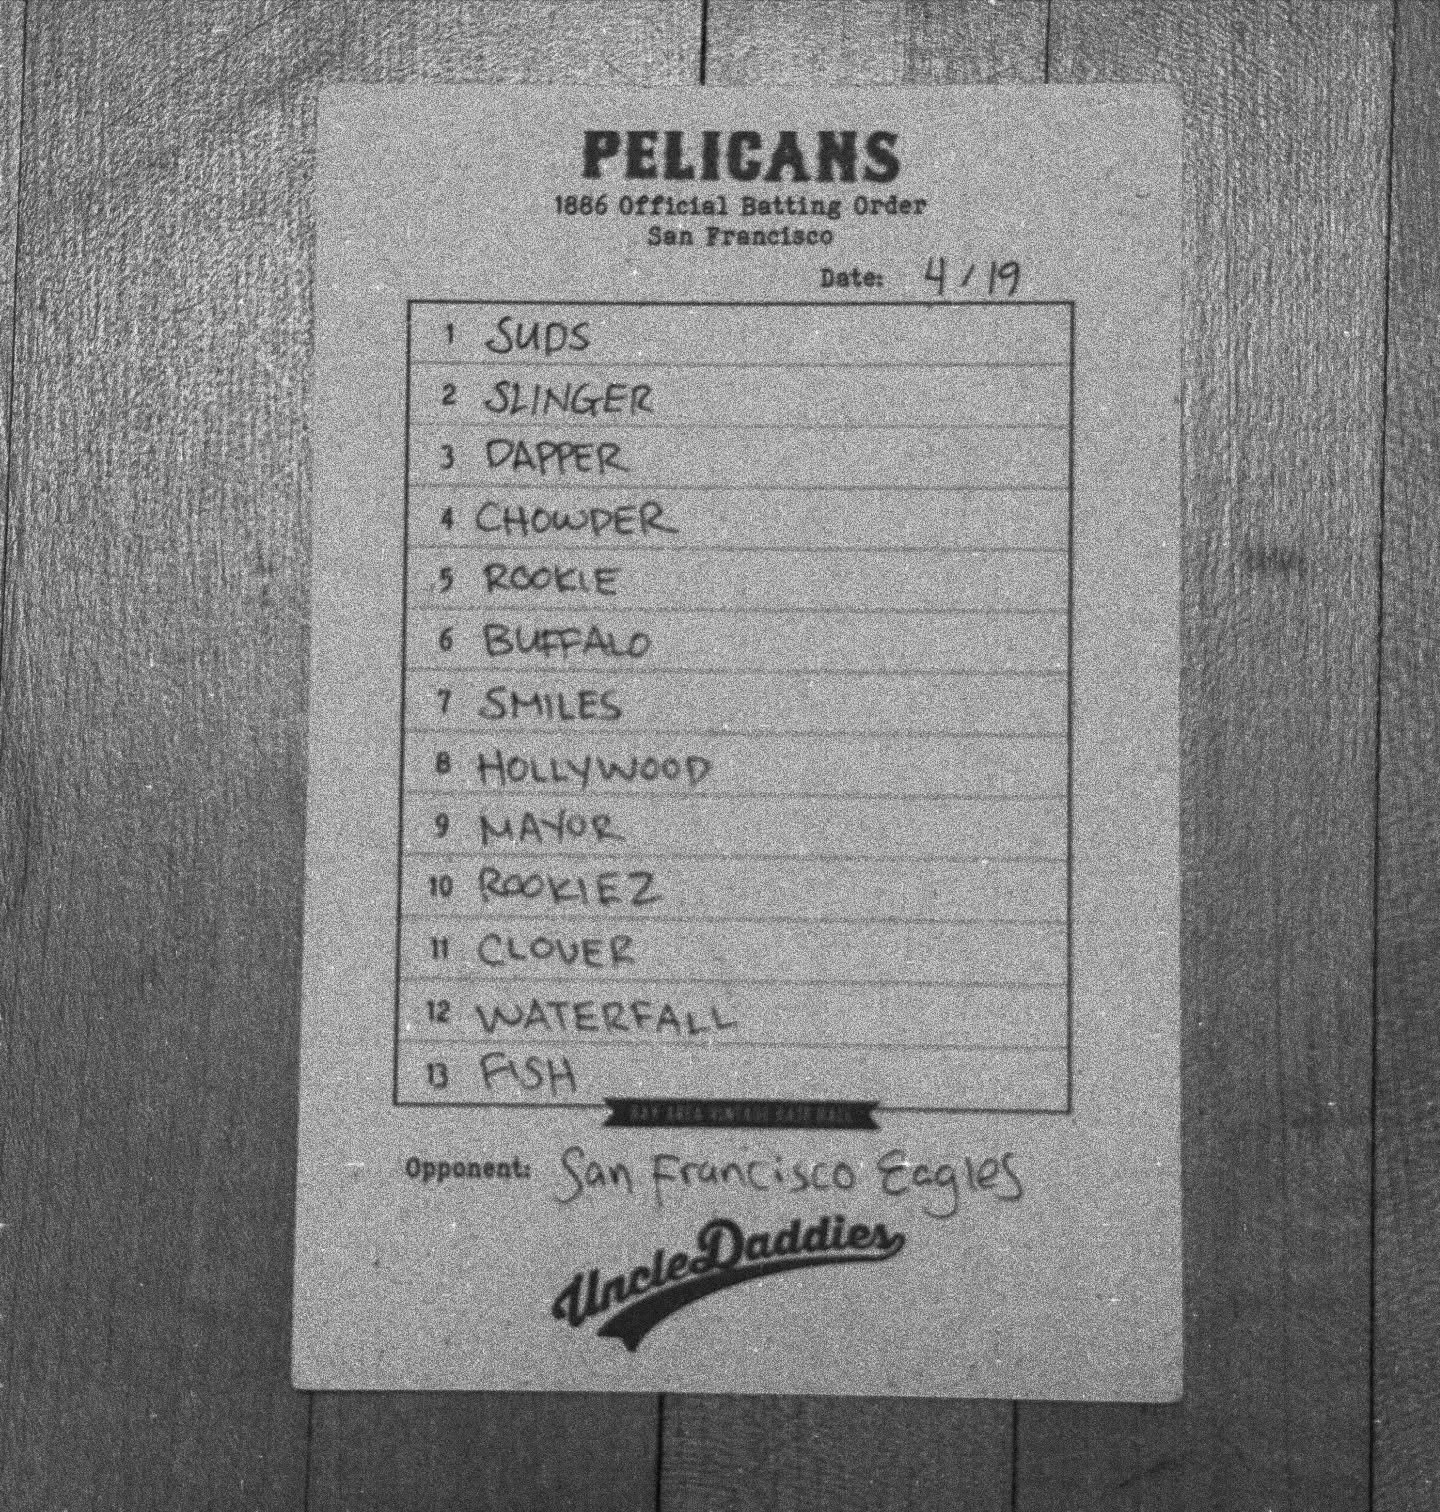 PELICANS
1886 Official Batting Order
San Francisco
Date: 4/19
1 SUDS
2 SLINGER
3 DAPPER
4 CHOWDER
5 ROOKIE
6 BUFFALO
7 SMILES
8 HOLLYWOOD
9 MAYOR
10 ROOKIE2
11 CLOVER
12 WATERFALL
13 FISH
Opponent: San Francisco Eagles
Uncle Daddies